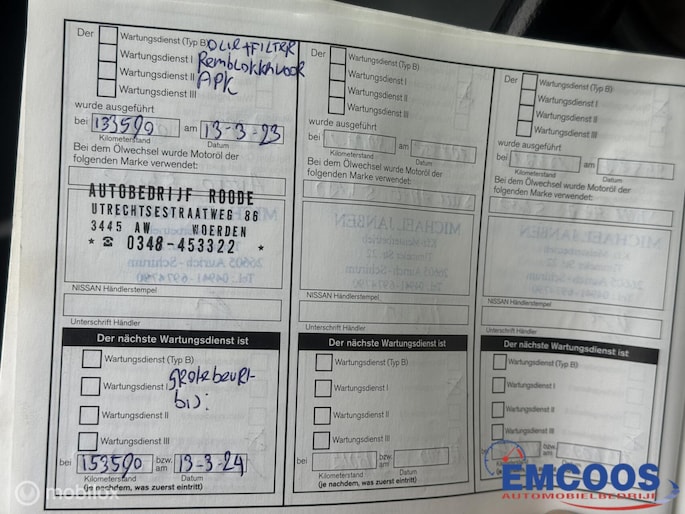 Der Wartungsdienst (Typ B) OLIE+FILTER
Wartungsdienst I Remblokken voor
Wartungsdienst II APK
Wartungsdienst III
wurde ausgeführt
bei 133590 am 13-3-23
Kilometerstand Datum
Bei dem Ölwechsel wurde Motoröl der
folgenden Marke verwendet:
AUTOBEDRIJF ROODE
UTRECHTSESTRAATWEG 86
3445 AW WOERDEN
* ☎ 0348-453322 *
NISSAN Händlerstempel
Unterschrift Händler
Der nächste Wartungsdienst ist
Wartungsdienst (Typ B)
Wartungsdienst I Grote beurt
Wartungsdienst II bij:
Wartungsdienst III
bei 153590 bzw. am 13-3-24
Kilometerstand Datum
(je nachdem, was zuerst eintritt)
Der Wartungsdienst (Typ B)
Wartungsdienst I
Wartungsdienst II
Wartungsdienst III
wurde ausgeführt
bei am
Kilometerstand Datum
Bei dem Ölwechsel wurde Motoröl der
folgenden Marke verwendet:
MICHAEL JANSEN
NISSAN Händlerstempel
Unterschrift Händler
Der nächste Wartungsdienst ist
Wartungsdienst (Typ B)
Wartungsdienst I
Wartungsdienst II
Wartungsdienst III
bei bzw. am
Kilometerstand Datum
(je nachdem, was zuerst eintritt)
Der Wartungsdienst (Typ B)
Wartungsdienst I
Wartungsdienst II
Wartungsdienst III
wurde ausgeführt
bei am
Kilometerstand Datum
Bei dem Ölwechsel wurde Motoröl der
folgenden Marke verwendet:
MICHAEL JANSEN
NISSAN Händlerstempel
Unterschrift Händler
Der nächste Wartungsdienst ist
Wartungsdienst (Typ B)
Wartungsdienst I
Wartungsdienst II
Wartungsdienst III
bei bzw. am
(je nachdem, was zuerst eintritt)
EMCOOS
AUTOMOBIELBEDRIJF
mobilox